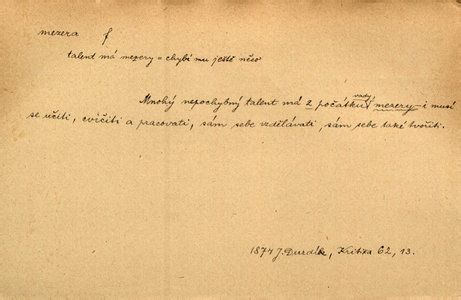 mezera f
talent má mezery = chybí mu ještě něco
Mnohý nepochybný talent má z počátku vady, mezery - i musí
se učiti, cvičiti a pracovati, sám sebe vzdělávati, sám sebe také tvořiti.
1874 J. Durdík, Kritika 62, 13.